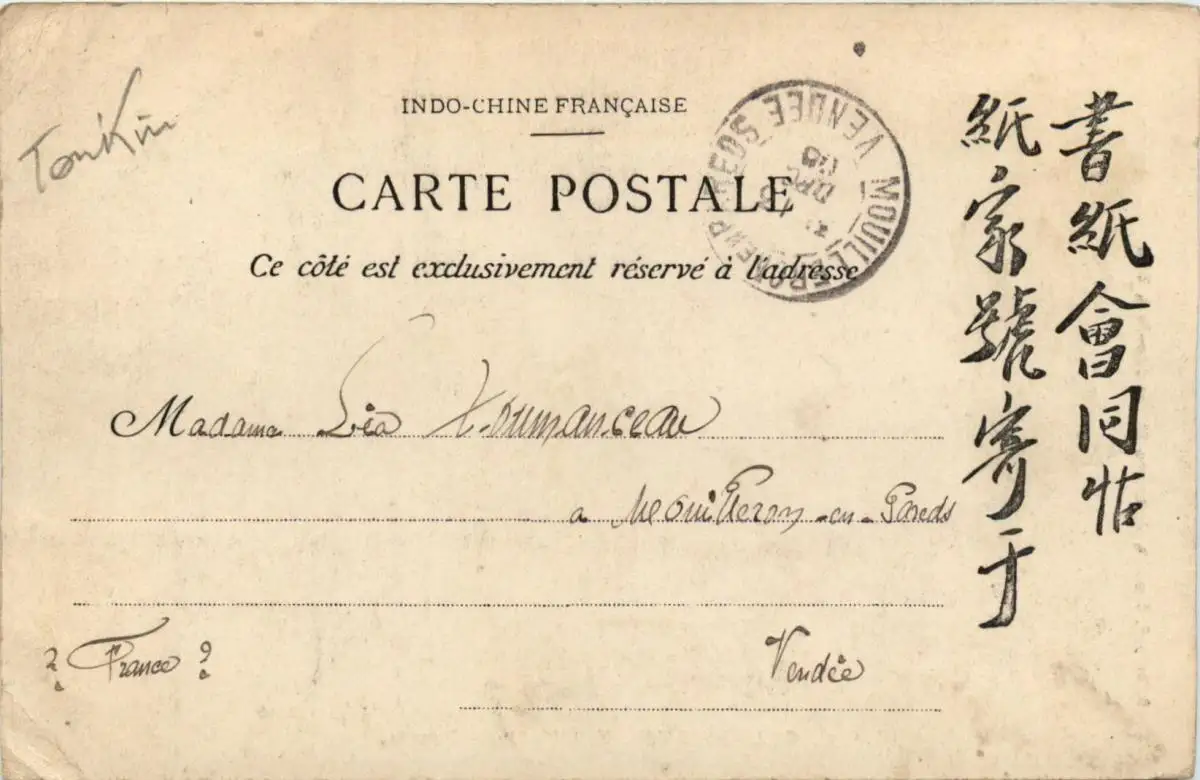 TonKin
INDO-CHINE FRANÇAISE
CARTE POSTALE
Ce côté est exclusivement réservé à l'adresse
MOUILLERON-EN-PAREDS VENDÉE
Madame Léa
a Mouilleron-en-Pareds
Vendée
? France ?
書紙會同帖
紙家號寄于